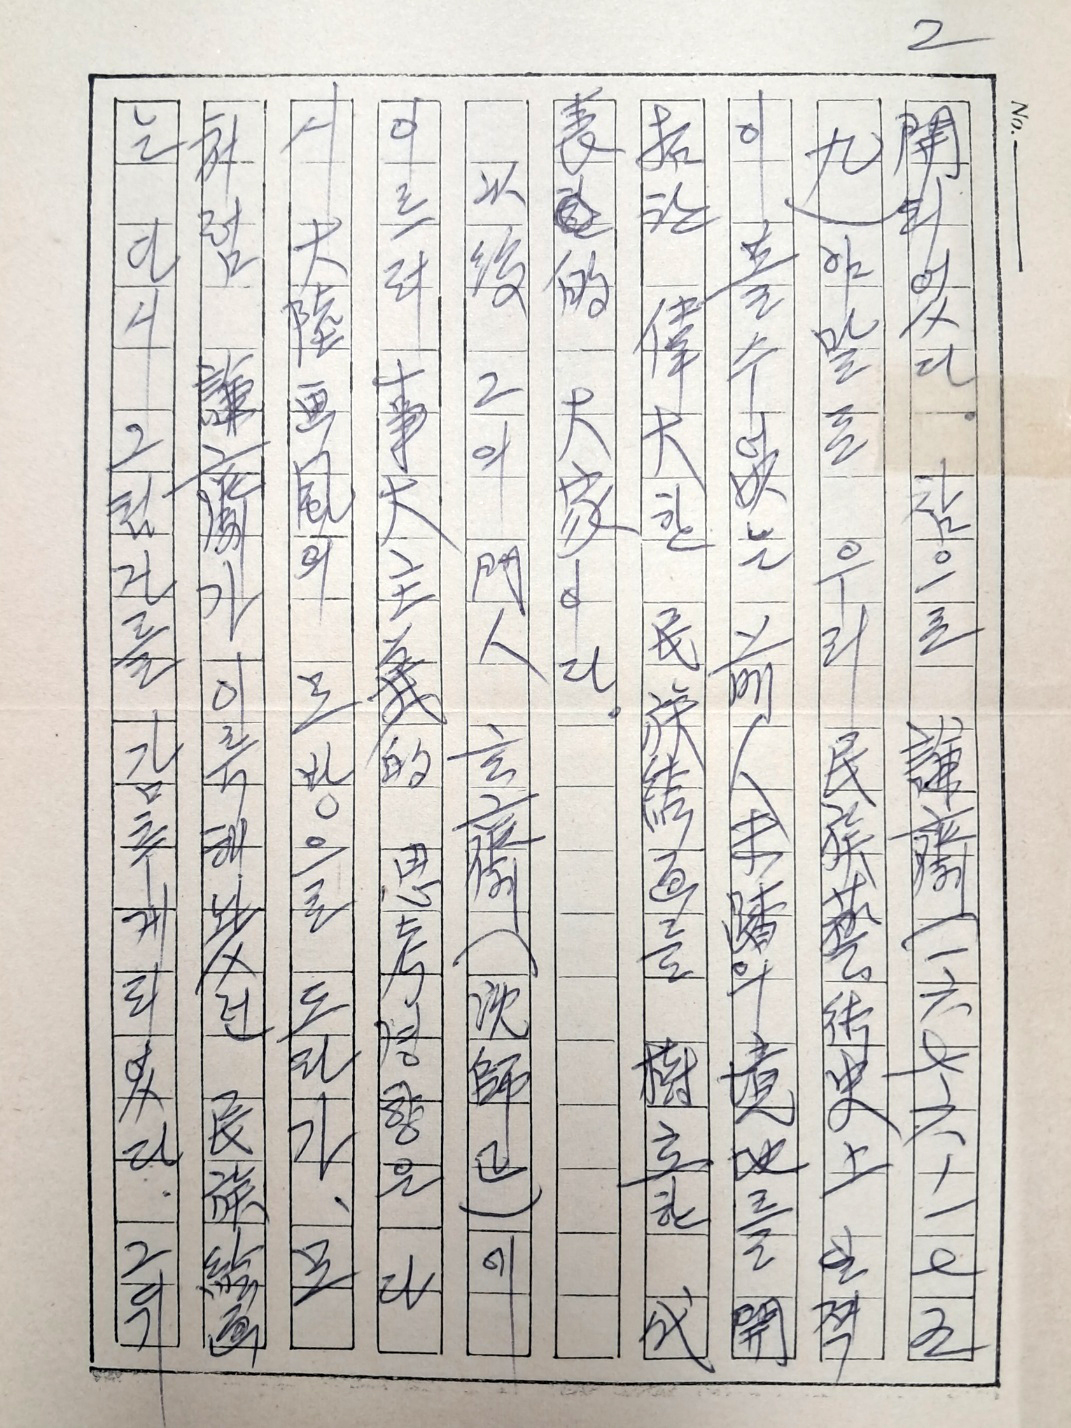 2
No.
開되었다. 참으로 謙齋(一六七六―一七五
九)야말로 우리 民族藝術史上 일찍
이 볼수없는 前人未踏의 境地를 開
拓한 偉大한 民族繪画를 樹立한 代
表的 大家이다.
以後 그의 門人 玄齋(沈師正)에
이르러 事大主義的 思考경향은 다
시 大陸画風의 모방으로 도라가, 모
처럼 謙齋가 이륙해 놨던 民族繪画
는 다시 그 빛갈을 감추게 되었다. 그뒤